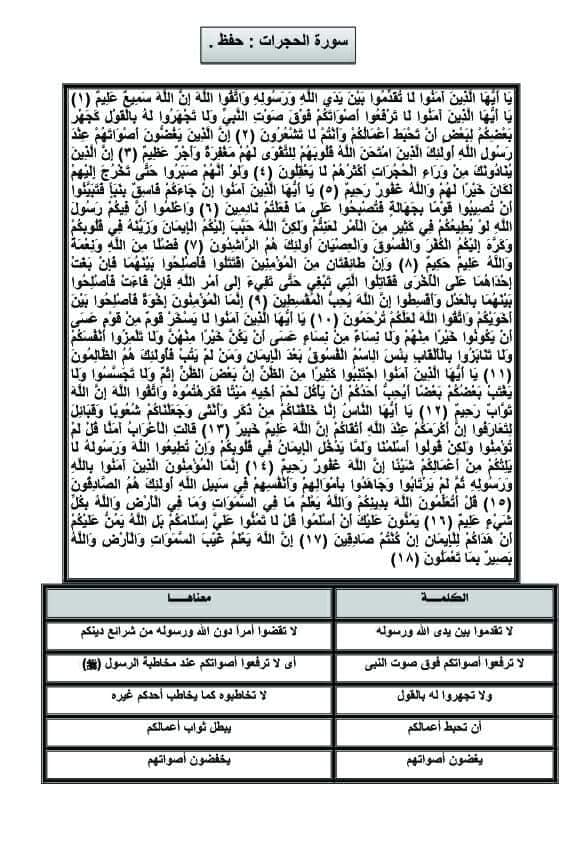 سورة الحجرات : حفظ .
يَا أَيُّهَا الَّذِينَ آمَنُوا لَا تُقَدِّمُوا بَيْنَ يَدَيِ اللَّهِ وَرَسُولِهِ وَاتَّقُوا اللَّهَ إِنَّ اللَّهَ سَمِيعٌ عَلِيمٌ (١)
يَا أَيُّهَا الَّذِينَ آمَنُوا لَا تَرْفَعُوا أَصْوَاتَكُمْ فَوْقَ صَوْتِ النَّبِيِّ وَلَا تَجْهَرُوا لَهُ بِالْقَوْلِ كَجَهْرِ
بَعْضِكُمْ لِبَعْضٍ أَنْ تَحْبَطَ أَعْمَالُكُمْ وَأَنْتُمْ لَا تَشْعُرُونَ (٢) إِنَّ الَّذِينَ يَغُضُّونَ أَصْوَاتَهُمْ عِنْدَ
رَسُولِ اللَّهِ أُولَئِكَ الَّذِينَ امْتَحَنَ اللَّهُ قُلُوبَهُمْ لِلتَّقْوَى لَهُمْ مَغْفِرَةٌ وَأَجْرٌ عَظِيمٌ (٣) إِنَّ الَّذِينَ
يُنَادُونَكَ مِنْ وَرَاءِ الْحُجُرَاتِ أَكْثَرُهُمْ لَا يَعْقِلُونَ (٤) وَلَوْ أَنَّهُمْ صَبَرُوا حَتَّى تَخْرُجَ إِلَيْهِمْ
لَكَانَ خَيْرًا لَهُمْ وَاللَّهُ غَفُورٌ رَحِيمٌ (٥) يَا أَيُّهَا الَّذِينَ آمَنُوا إِنْ جَاءَكُمْ فَاسِقٌ بِنَبَأٍ فَتَبَيَّنُوا
أَنْ تُصِيبُوا قَوْمًا بِجَهَالَةٍ فَتُصْبِحُوا عَلَى مَا فَعَلْتُمْ نَادِمِينَ (٦) وَاعْلَمُوا أَنَّ فِيكُمْ رَسُولَ
اللَّهِ لَوْ يُطِيعُكُمْ فِي كَثِيرٍ مِنَ الْأَمْرِ لَعَنِتُّمْ وَلَكِنَّ اللَّهَ حَبَّبَ إِلَيْكُمُ الْإِيمَانَ وَزَيَّنَهُ فِي قُلُوبِكُمْ
وَكَرَّهَ إِلَيْكُمُ الْكُفْرَ وَالْفُسُوقَ وَالْعِصْيَانَ أُولَئِكَ هُمُ الرَّاشِدُونَ (٧) فَضْلًا مِنَ اللَّهِ وَنِعْمَةً
وَاللَّهُ عَلِيمٌ حَكِيمٌ (٨) وَإِنْ طَائِفَتَانِ مِنَ الْمُؤْمِنِينَ اقْتَتَلُوا فَأَصْلِحُوا بَيْنَهُمَا فَإِنْ بَغَتْ
إِحْدَاهُمَا عَلَى الْأُخْرَى فَقَاتِلُوا الَّتِي تَبْغِي حَتَّى تَفِيءَ إِلَى أَمْرِ اللَّهِ فَإِنْ فَاءَتْ فَأَصْلِحُوا
بَيْنَهُمَا بِالْعَدْلِ وَأَقْسِطُوا إِنَّ اللَّهَ يُحِبُّ الْمُقْسِطِينَ (٩) إِنَّمَا الْمُؤْمِنُونَ إِخْوَةٌ فَأَصْلِحُوا بَيْنَ
أَخَوَيْكُمْ وَاتَّقُوا اللَّهَ لَعَلَّكُمْ تُرْحَمُونَ (١٠) يَا أَيُّهَا الَّذِينَ آمَنُوا لَا يَسْخَرْ قَومٌ مِنْ قَوْمٍ عَسَى
أَنْ يَكُونُوا خَيْرًا مِنْهُمْ وَلَا نِسَاءٌ مِنْ نِسَاءٍ عَسَى أَنْ يَكُنَّ خَيْرًا مِنْهُنَّ وَلَا تَلْمِزُوا أَنْفُسَكُمْ
وَلَا تَنَابَزُوا بِالْأَلْقَابِ بِئْسَ الِاسْمُ الْفُسُوقُ بَعْدَ الْإِيمَانِ وَمَنْ لَمْ يَتُبْ فَأُولَئِكَ هُمُ الظَّالِمُونَ
(١١) يَا أَيُّهَا الَّذِينَ آمَنُوا اجْتَنِبُوا كَثِيرًا مِنَ الظَّنِّ إِنَّ بَعْضَ الظَّنِّ إِثْمٌ وَلَا تَجَسَّسُوا وَلَا
يَغْتَبْ بَعْضُكُمْ بَعْضًا أَيُحِبُّ أَحَدُكُمْ أَنْ يَأْكُلَ لَحْمَ أَخِيهِ مَيْتًا فَكَرِهْتُمُوهُ وَاتَّقُوا اللَّهَ إِنَّ اللَّهَ
تَوَّابٌ رَحِيمٌ (١٢) يَا أَيُّهَا النَّاسُ إِنَّا خَلَقْنَاكُمْ مِنْ ذَكَرٍ وَأُنْثَى وَجَعَلْنَاكُمْ شُعُوبًا وَقَبَائِلَ
لِتَعَارَفُوا إِنَّ أَكْرَمَكُمْ عِنْدَ اللَّهِ أَتْقَاكُمْ إِنَّ اللَّهَ عَلِيمٌ خَبِيرٌ (١٣) قَالَتِ الْأَعْرَابُ آمَنَّا قُلْ لَمْ
تُؤْمِنُوا وَلَكِنْ قُولُوا أَسْلَمْنَا وَلَمَّا يَدْخُلِ الْإِيمَانُ فِي قُلُوبِكُمْ وَإِنْ تُطِيعُوا اللَّهَ وَرَسُولَهُ لَا
يَلِتْكُمْ مِنْ أَعْمَالِكُمْ شَيْئًا إِنَّ اللَّهَ غَفُورٌ رَحِيمٌ (١٤) إِنَّمَا الْمُؤْمِنُونَ الَّذِينَ آمَنُوا بِاللَّهِ
وَرَسُولِهِ ثُمَّ لَمْ يَرْتَابُوا وَجَاهَدُوا بِأَمْوَالِهِمْ وَأَنْفُسِهِمْ فِي سَبِيلِ اللَّهِ أُولَئِكَ هُمُ الصَّادِقُونَ
(١٥) قُلْ أَتُعَلِّمُونَ اللَّهَ بِدِينِكُمْ وَاللَّهُ يَعْلَمُ مَا فِي السَّمَوَاتِ وَمَا فِي الْأَرْضِ وَاللَّهُ بِكُلِّ
شَيْءٍ عَلِيمٌ (١٦) يَمُنُّونَ عَلَيْكَ أَنْ أَسْلَمُوا قُلْ لَا تَمُنُّوا عَلَيَّ إِسْلَامَكُمْ بَلِ اللَّهُ يَمُنُّ عَلَيْكُمْ
أَنْ هَدَاكُمْ لِلْإِيمَانِ إِنْ كُنْتُمْ صَادِقِينَ (١٧) إِنَّ اللَّهَ يَعْلَمُ غَيْبَ السَّمَوَاتِ وَالْأَرْضِ وَاللَّهُ
بَصِيرٌ بِمَا تَعْمَلُونَ (١٨)
الكلمـــة معناهـــا
لا تقدموا بين يدى الله ورسوله لا تقضوا أمرأ دون الله ورسوله من شرائع دينكم
لا ترفعوا أصواتكم فوق صوت النبى أى لا ترفعوا أصواتكم عند مخاطبة الرسول (ﷺ)
ولا تجهروا له بالقول لا تخاطبوه كما يخاطب أحدكم غيره
أن تحبط أعمالكم يبطل ثواب أعمالكم
يغضون أصواتهم يخفضون أصواتهم